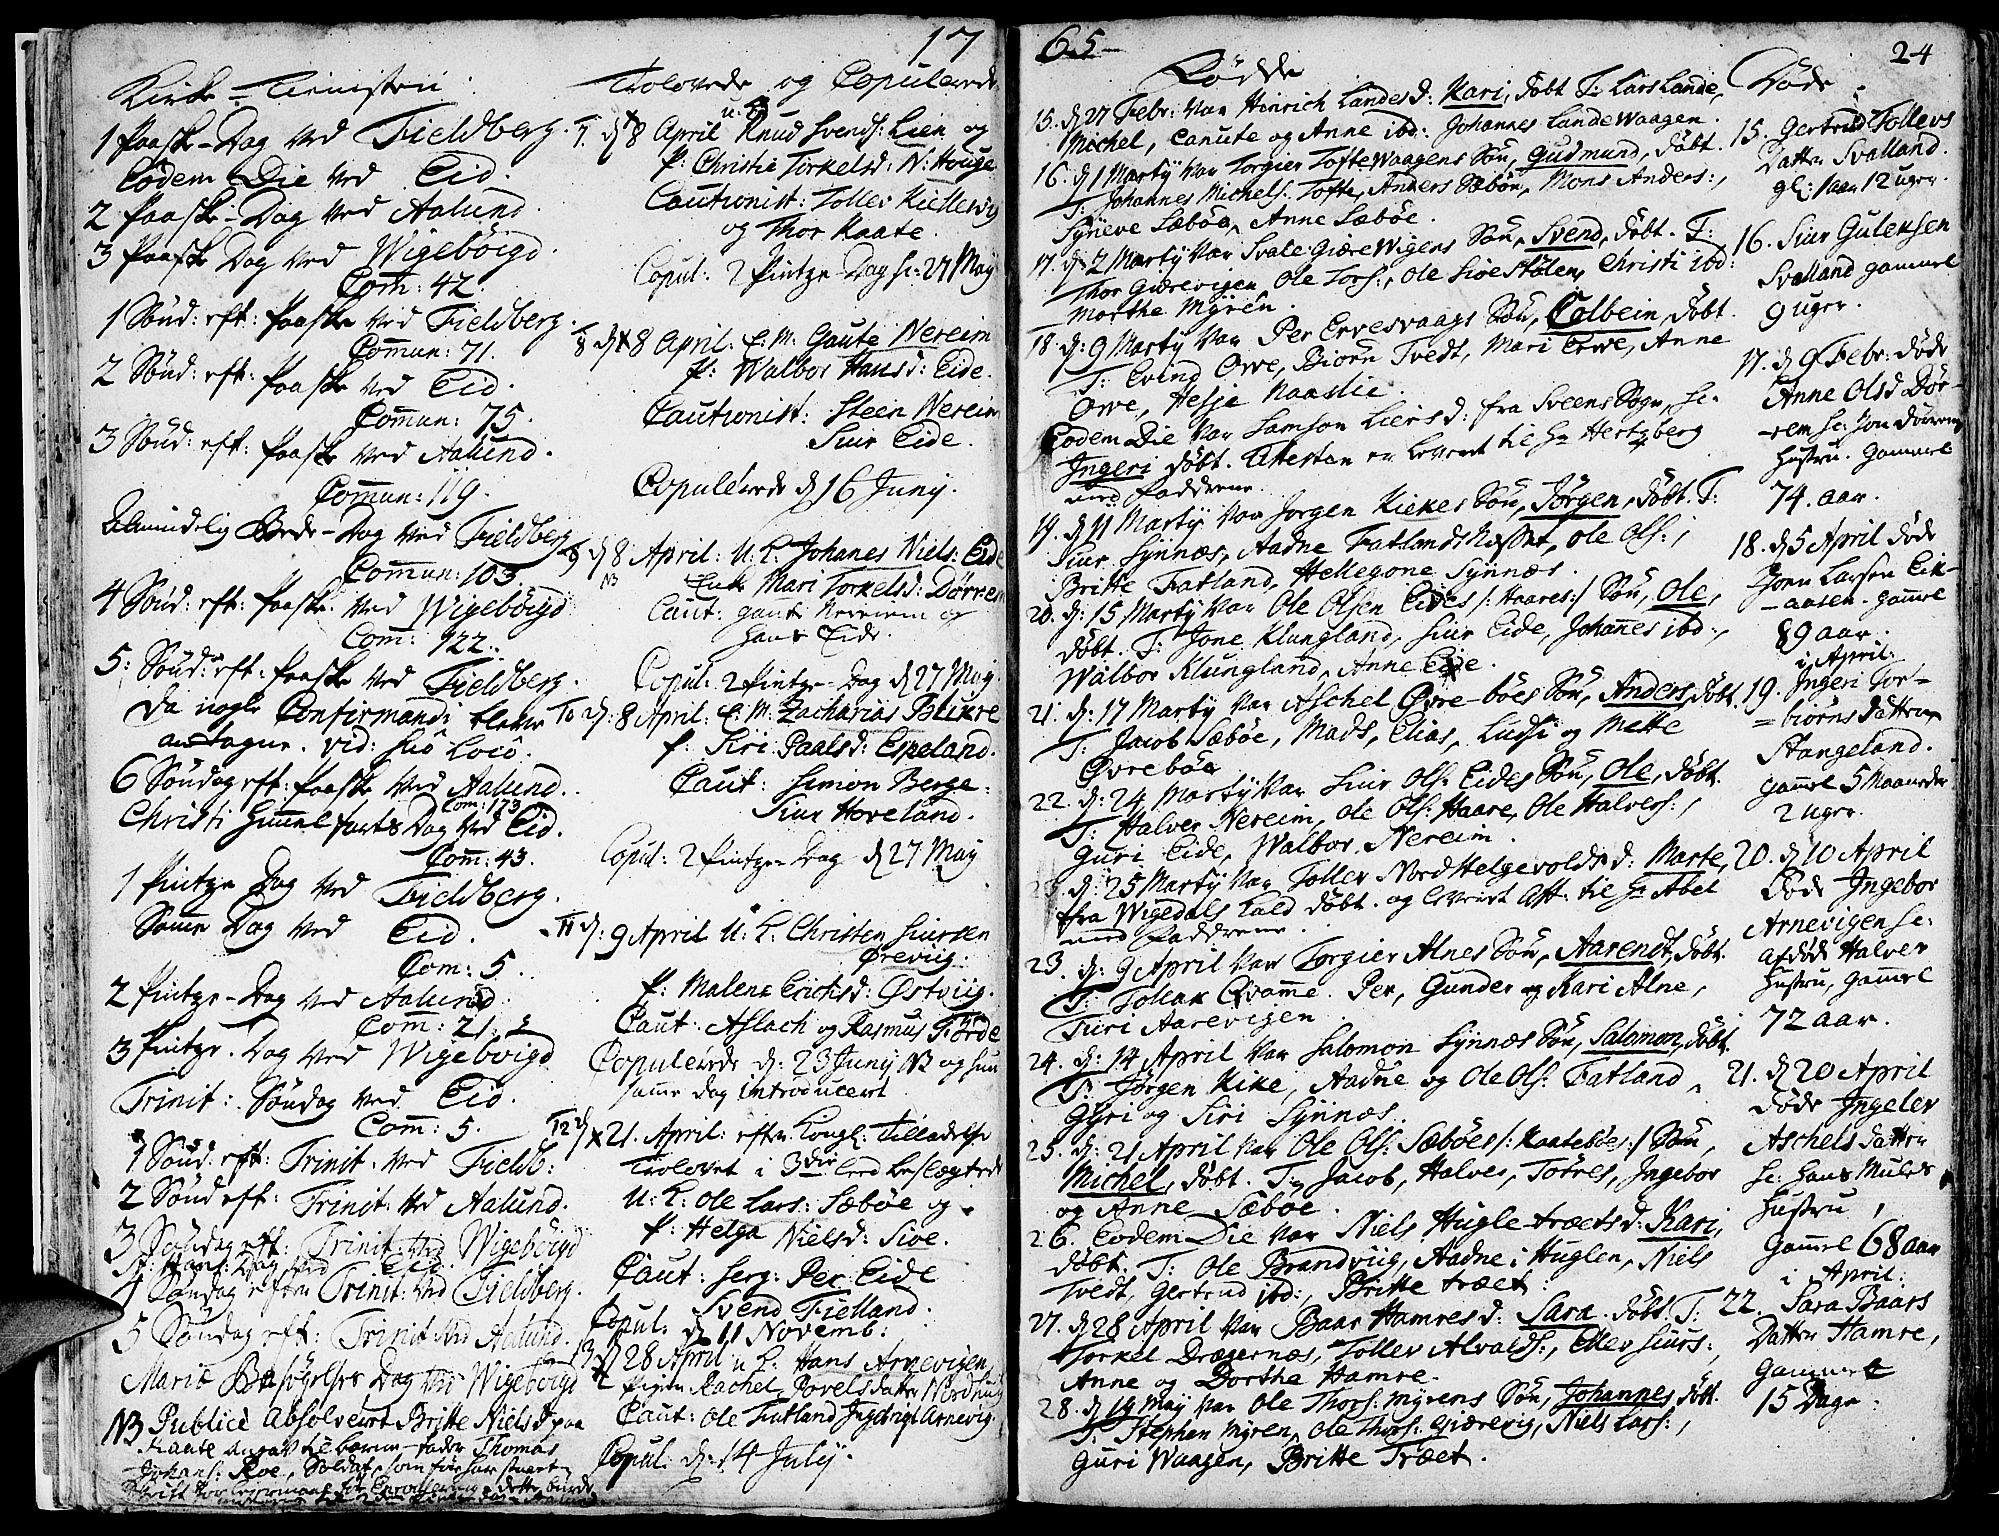 17
Kirke-Tienisten:
1 Paaske-Dag ved Fieldberg.
Eodem Die ved Eid.
2 Paaske-Dag ved Aalund.
3 Paaske Dag ved Wigebøigd
Com: 42
1 Sønd: eft: Paaske ved Fieldberg.
Commun: 71.
2 Sønd: eft: Paaske ved Eid.
Commun: 75.
3 Sønd: eft: Paaske ved Aalund.
Commun: 119.
Almindelig Bede-Dag ved Fieldberg
Commun: 103.
4 Sønd: eft: Paaske ved Wigebøigd
Com: 122.
5: Sønd: eft: Paaske ved Fieldberg.
da nogle Confirmandi bleve
antagne. vid: suo Loco.
6 Søndag eft: Paaske ved Aalund.
Com: 173
Christi Himmelfarts Dag ved Eid.
Com: 43.
1 Pintze Dag ved Fieldberg.
Samme Dag ved Eid.
Com: 5.
2 Pintze-Dag ved Aalund
Com: 21.
3 Pintze-Dag ved Wigebøigd
Trinit: Søndag ved Eid.
Com: 5.
1 Sønd: eft: Trinit: ved Fieldb:
2 Sønd eft: Trinit: ved Aalund.
3 Søndag eft: Trinit: ved Wigebøigd
St: Hans: Dag ved Eid.
4 Søndag efter Trinit: ved Fieldberg.
5 Søndag eft: Trinit: ved Aalund.
Mariæ Besøgelses Dag ved Wigebøigd
NB Publicè Absolveret Britte Nielsd: paa
Kaate angav til barne-fader Thomas
Johans: Roe, Soldat, som før har
Trolovede og Copulerede
7. d 8 April u. k. Knud Svends: Lien og
P: Christie Torkelsd: N: Houge
Cautionist: Tollev Kiellevig
og Thor Kaate.
Copul: 2 Pintze-Dag se: 27 May
8 d 8 April. E. M. Gaute Nereim
P: Walbor Hansd: Eide.
Cautionist: Steen Nereim
Siur Eide.
Copulerede d 16 Juny.
9 d 8. April: U. K. Johanes Niels: Eide
NB Enke Mari Torkelsd: Dørrem
Caut: Gaut Nereim og
Hans Eide.
Copul: 2 Pintze-Dag d 27 May
10 d: 8 April: E. M. Zacharias Blikre
P: Siri Paalsd: Espeland.
Caut: Simon Berge.
Siur Hoveland.
Copul: 2 Pintze-Dag d 27 May
11 d: 9 April U. K. Christen Siursen
Ørevig.
P: Malene Erichsd: Østviig.
Caut: Aslach og Rasmus Førde
Copulerede d: 23 Juny NB og hun
samme Dag introduceret
12 d 21. April: efter Kongl: Tilladelse
Trolovet i 3die Leed beslægtede
U: K: Ole Lars: Sæbøe og
P: Helga Nielsd: Sioe.
Caut: serg: Per Eide
Svend Fielland.
Copul: d 11 Novemb:
13 d 28 April u k. Hans Arnevigen,
Pigen Rachel Povelsdatter Nordhug
Caut: Ole Fatland Ingebrigt Arnevig.
Copul: d: 14 July.
65
24
Fødde
15. d 27 Febr: var Hinrich Landes d: Kari, døbt T: Lars Lande,
Michel, Canute og Anne ibd: Johannes Landewaagen.
16. d 1 Marty var Torgier Toftewaagens Søn, Gudmund, døbt.
T: Johannes Michels: Tofte, Anders Sæbøe, Mons Anders:,
Syneve Sæbøe, Anne Sæbøe.
17. d: 2 Marty var Svale Giærewigens Søn, Svend, døbt. T:
Thor Giærevigen, Ole Tors:, Ole Sioestølen, Christi ibd:
Marthe Myren.
18. d: 9 Marty var Per Ervesvaags Søn, Colbein, døbt.
T: Evind Orve, Biørn Tvedt, Mari Erve, Anne
Orve, Helje Naadlie.
Eodem Die var Samson Liers d: fra Sveens Sogn, se:
Ingeri døbt. Attesten er leveret til Hr Hertzberg
med Fadderne.
19. d 11 Marty var Jorgen Kiekes Søn, Jørgen, døbt. T:
Siur Synnæs, Aadne Fatlandsnæsset, Ole Ols:,
Britte Fatland, Hellegone Synnæs.
20. d: 15 Marty var Ole Olsen Eides /: Haares:/ Søn, Ole,
døbt. T: Jone Klungland, Siur Eide, Johannes ibd:,
Walbor Klungland, Anne Eide.
21. d: 17 Marty var Aschel Øvre-bøes Søn, Anders, døbt.
T: Jacob Sæbøe, Mads, Elias, Ludsi og Mette
Øvrebøe
22. d: 24 Marty var Siur Ols: Eides Søn, Ole, døbt.
T: Halver Nereim, Ole Ols: Haare, Ole Halvers:,
Guri Eide, Walbor Nereim.
d: 25 Marty var Tollev Nord Helgevolds d: Marte,
fra Wigedals Kald døbt. og leveret Att: til Hr Abel
med Fadderne.
23. d: 9 April var Torgier Alnes Søn, Aarendt, døbt.
T: Tollak Qvamme. Per, Gunder og Kari Alne,
Turi Aarevigen
24. d: 14 April var Salomon Synnæs Søn, Salomon, døbt.
T: Jørgen Kike, Aadne og Ole Ols: Fatland,
Guri og Siri Synnæs.
25. d: 21 April var Ole Ols: Sæbøes /: Kaatebøes:/ Søn,
Michel, døbt. T: Jacob, Halver, Tørres, Ingebor
og Anne Sæbøe.
26. Eodem Die var Niels Hugletræets d: Kari,
døbt. T: Ole Brandviig, Aadne i Huglen, Niels
Tvedt, Gertrud ibd:, Britte Træet.
27. d 28 April var Baar Hamres d: Sara døbt. T:
Torkel Dragernæs, Tollev Alvalds:, Ellev Siurs:,
Anne og Dorthe Hamre.
28. d 19 May var Ole Thors: Myrens Søn, Johannes døbt.
T: Stephen Myren, Ole Thors: Giærevig, Niels Lars:,
Guri Waagen, Britte Træet.
Døde
15. Gertrud Tollevs
Datter Svalland.
gl: 1 aar 12 uger.
16. Siur Guleksen
Svalland gammel
9 uger.
17. d 9 Febr: døde
Anne Olsd Dør-
-rem se: Jon Dørrems
Hustru. Gammel
74. aar.
18. d 5 April døde
Joen Larsen Eik-
-aasen. gammel
89 aar.
i April:
19. Ingeri Tor-
=biørns Datter
Stangeland.
gammel 5 Maaneder
2 uger.
20. d 10 April
døde Ingebor
Arnevigen se:
afdøde Halver
Hustru, gammel
72 aar.
21. d 20 April
døde Ingelev
Aschels Datter
se: Hans Mules
Hustru,
Gammel 68 aar
i April:
22. Sara Baars
Datter Hamre,
Gammel
15 Dage.